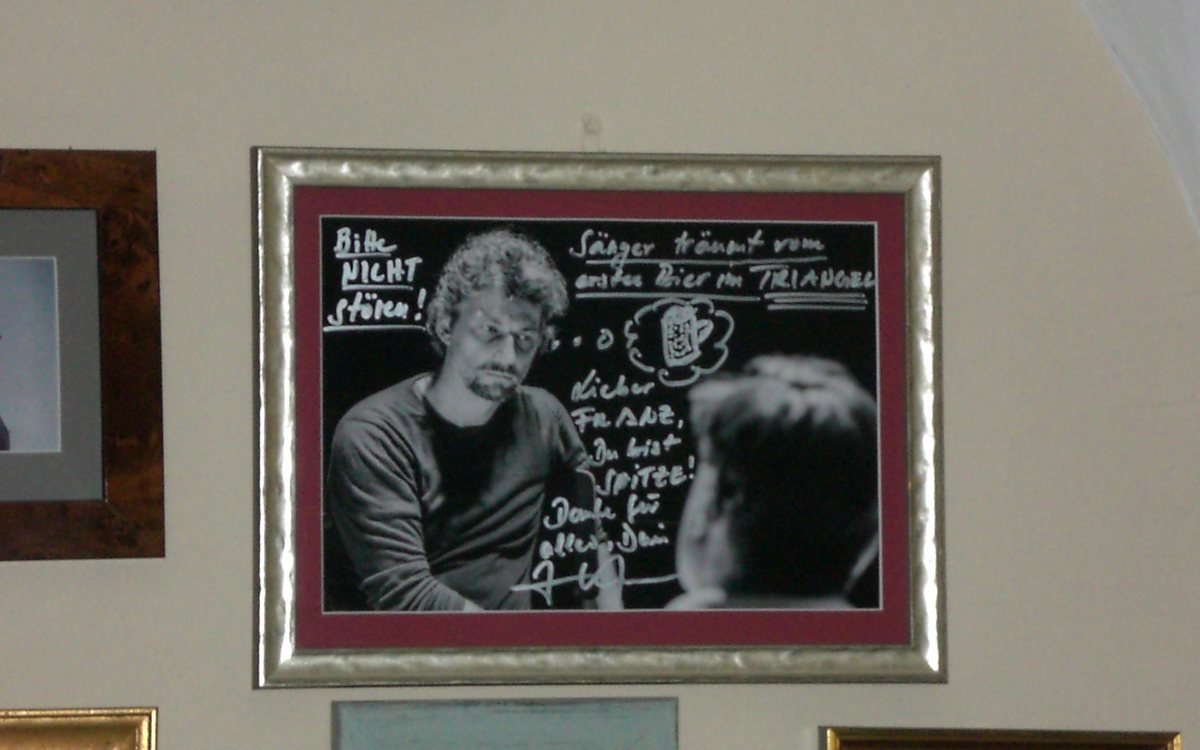 Bitte
NICHT
stören!
Sänger träumt vom
ersten Bier im TRIANGEL
Lieber
FRANZ,
Du bist
SPITZE!
Danke für
alles, Dein